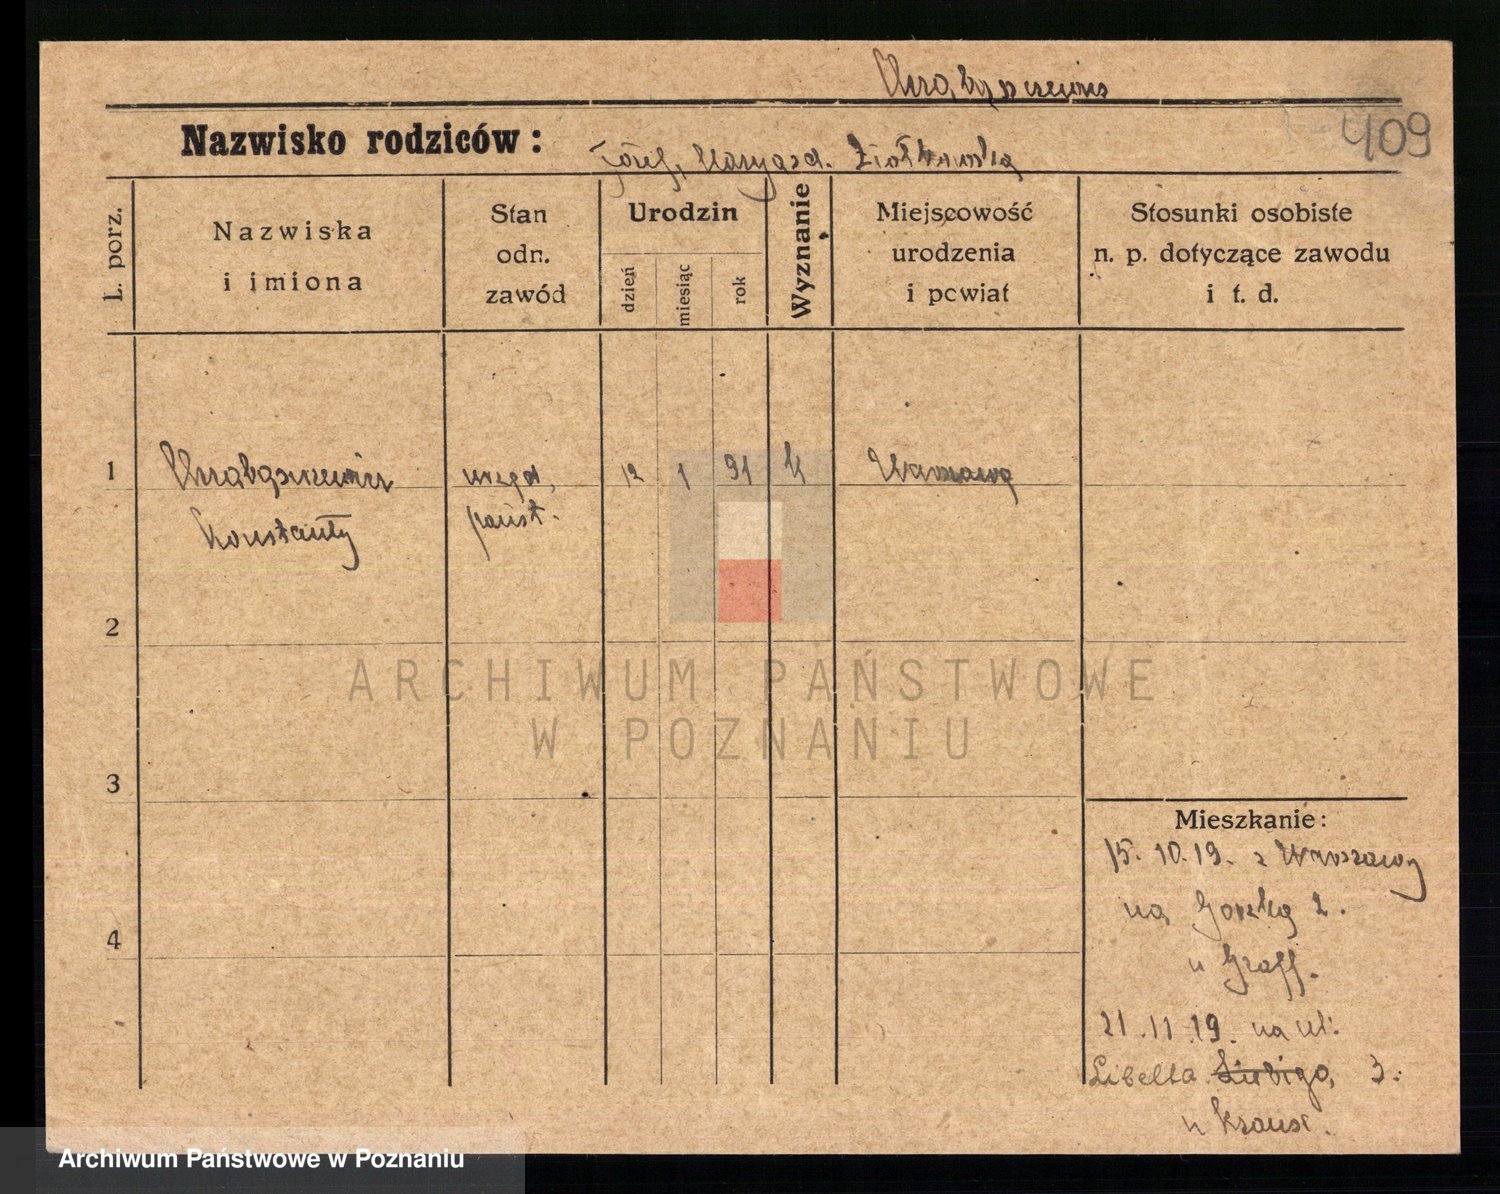 409
Nazwisko rodziców:
Józef, Marya zd. Ziółkowska
L. porz.
Nazwiska
i imiona
Stan
odn.
zawód
Urodzin
dzień
miesiąc
rok
Wyznanie
Miejscowość
urodzenia
i powiat
Stosunki osobiste
n. p. dotyczące zawodu
i t. d.
1
Konstanty
urzęd.
państ.
12
1
91
k
Warszawa
2
3
4
Mieszkanie:
15. 10. 19. z Warszawy
na Górką 2.
u Graff.
21. 11. 19. na ul:
Libelta Liebiga, 3.
u Kraus.
ARCHIWUM PAŃSTWOWE
W POZNANIU
Archiwum Państwowe w Poznaniu